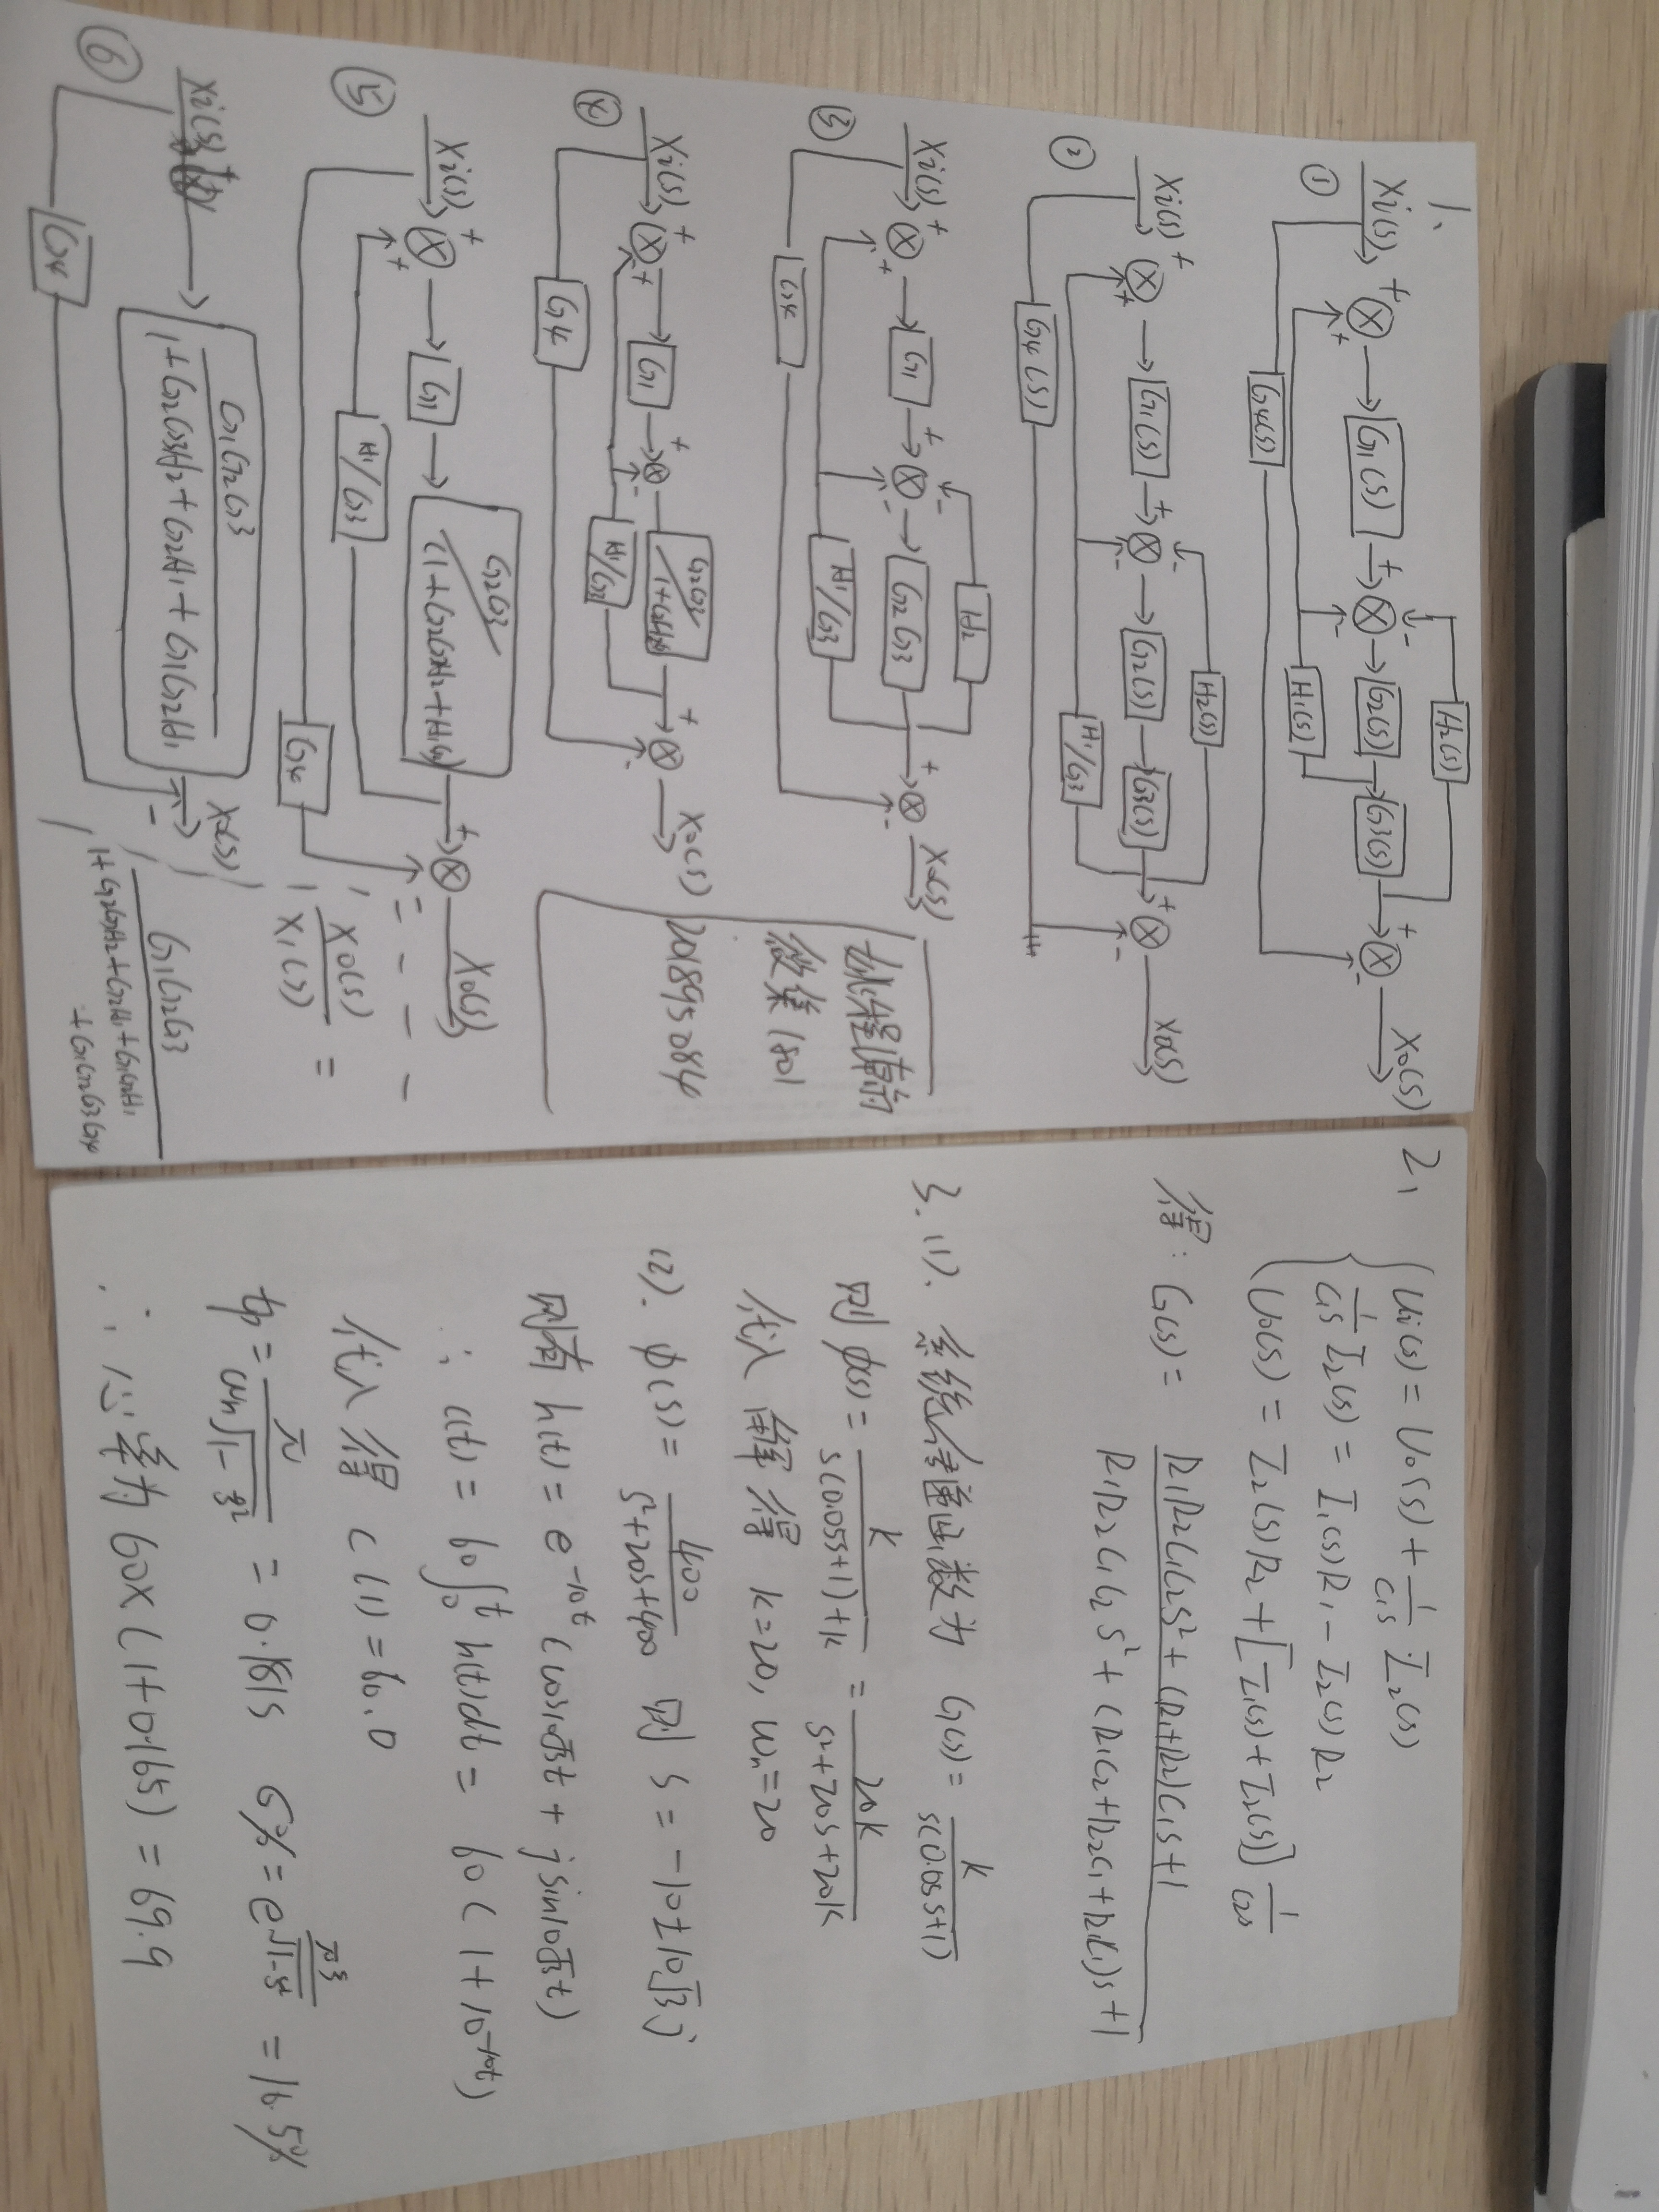 1、
H2(S)
Xi(S) + + G1(S) + - - G2(S) G3(S) + - X0(S)
①
H1(S)
G4(S)
H2(S)
Xi(S) + + G1(S) + - - G2(S) G3(S) + - X0(S)
②
H1/G3
G4(S)
H2
Xi(S) + + G1 + - - G2G3 + - X0(S)
③
H1/G3
G4
微集1801
201895084
G2G3/1+G2H2G3
Xi(S) + + G1 + - + - X0(S)
④
H1/G3
G4
G2G3/(1+G2G3H2+H1G2)
Xi(S) + + G1 + - X0(S)
⑤
H1/G3
G4
X0(S)/X1(S) =
G1G2G3/1+G2G3H2+G2H1+G1G2H1
Xi(S) + X0(S) -
⑥
G4
G1G2G3/1+G2G3H2+G2H1+G1G2H1+G1G2G3G4
2、
Ui(S) = U0(S) + 1/C1S I2(S)
1/C1S I2(S) = I1(S)R1 - I2(S)R2
U0(S) = I2(S)R2 + [I1(S)+I2(S)] 1/C2S
得: G(S) = R1R2C1C2S²+(R1+R2)C1S+1/R1R2C1C2S²+(R1C2+R2C1+R1C1)S+1
3.(1). 系统传递函数为 G(S) = K/S(0.05S+1)
则 φ(S) = K/S(0.05S+1)+K = 20K/S²+20S+20K
代入 解得 K=20, ωn=20
(2). φ(S) = 400/S²+20S+400 则 S = -10±10√3j
则有 h(t) = e^-10t (cos10√3t + jsin10√3t)
∴ c(t) = 60∫0^t h(t)dt = 60(1+10^-10t)
代入得 c(1)=60.0
tp = π/ωn√1-ξ² = 0.181S σ% = e^πξ/√1-ξ² = 16.5%
∴ 心率为 60×(1+0.165) = 69.9